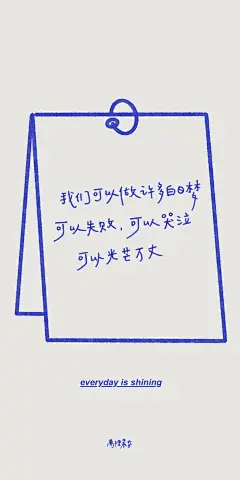 我们可以做许多白日梦
可以失败，可以哭泣
可以光芒万丈
everyday is shining